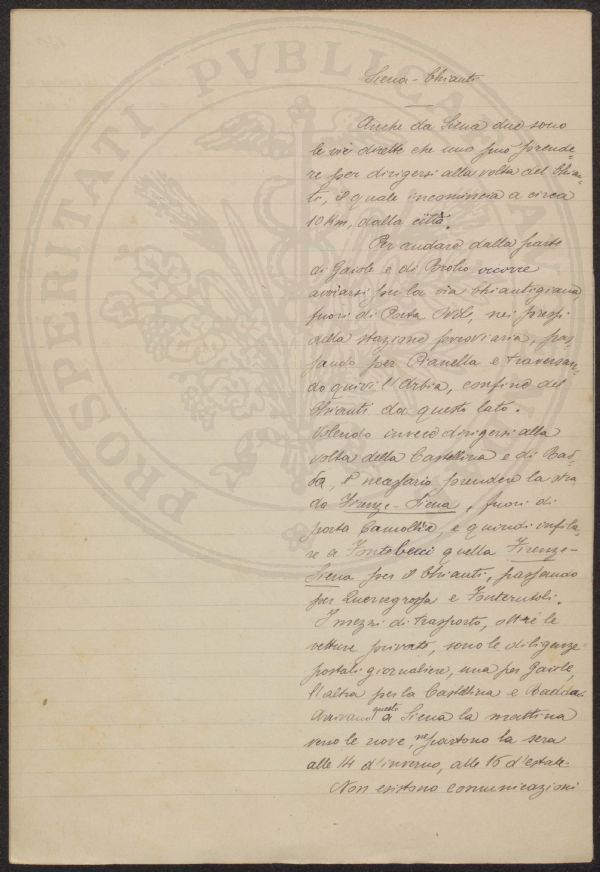 Siena - Chianti
Anche da Siena due sono
le vie dirette che uno può prende-
re per dirigersi alla volta del Chian-
ti, il quale incomincia a circa
10 Km, dalla città.
Per andare dalla parte
di Gaiole e di Brolio occorre
avviarsi per la via Chiantigiana
fuori di Porta Ovile, nei pressi
della stazione ferroviaria, pas-
sando per Pianella e traversan-
do quivi l'Arbia, confine del
Chianti da questo lato.
Volendo invece dirigersi alla
volta della Castellina e di Rad-
da, è necessario prendere la stra
da Firenze - Siena, fuori di
porta Camollia, e quindi infila-
re a Fontebecci quella Firenze-
Siena per il Chianti, passando
per Quercegrossa e Fonterutoli.
I mezzi di trasporto, oltre le
vetture private, sono le diligenze
postali giornaliere, una per Gaiole,
l'altra per la Castellina e Radda.
Arrivano queste a Siena la mattina
verso le nove, ne partono la sera
alle 14 d'inverno, alle 16 d'estate.
Non esistono comunicazioni
PROSPERITATI PVBLICAE